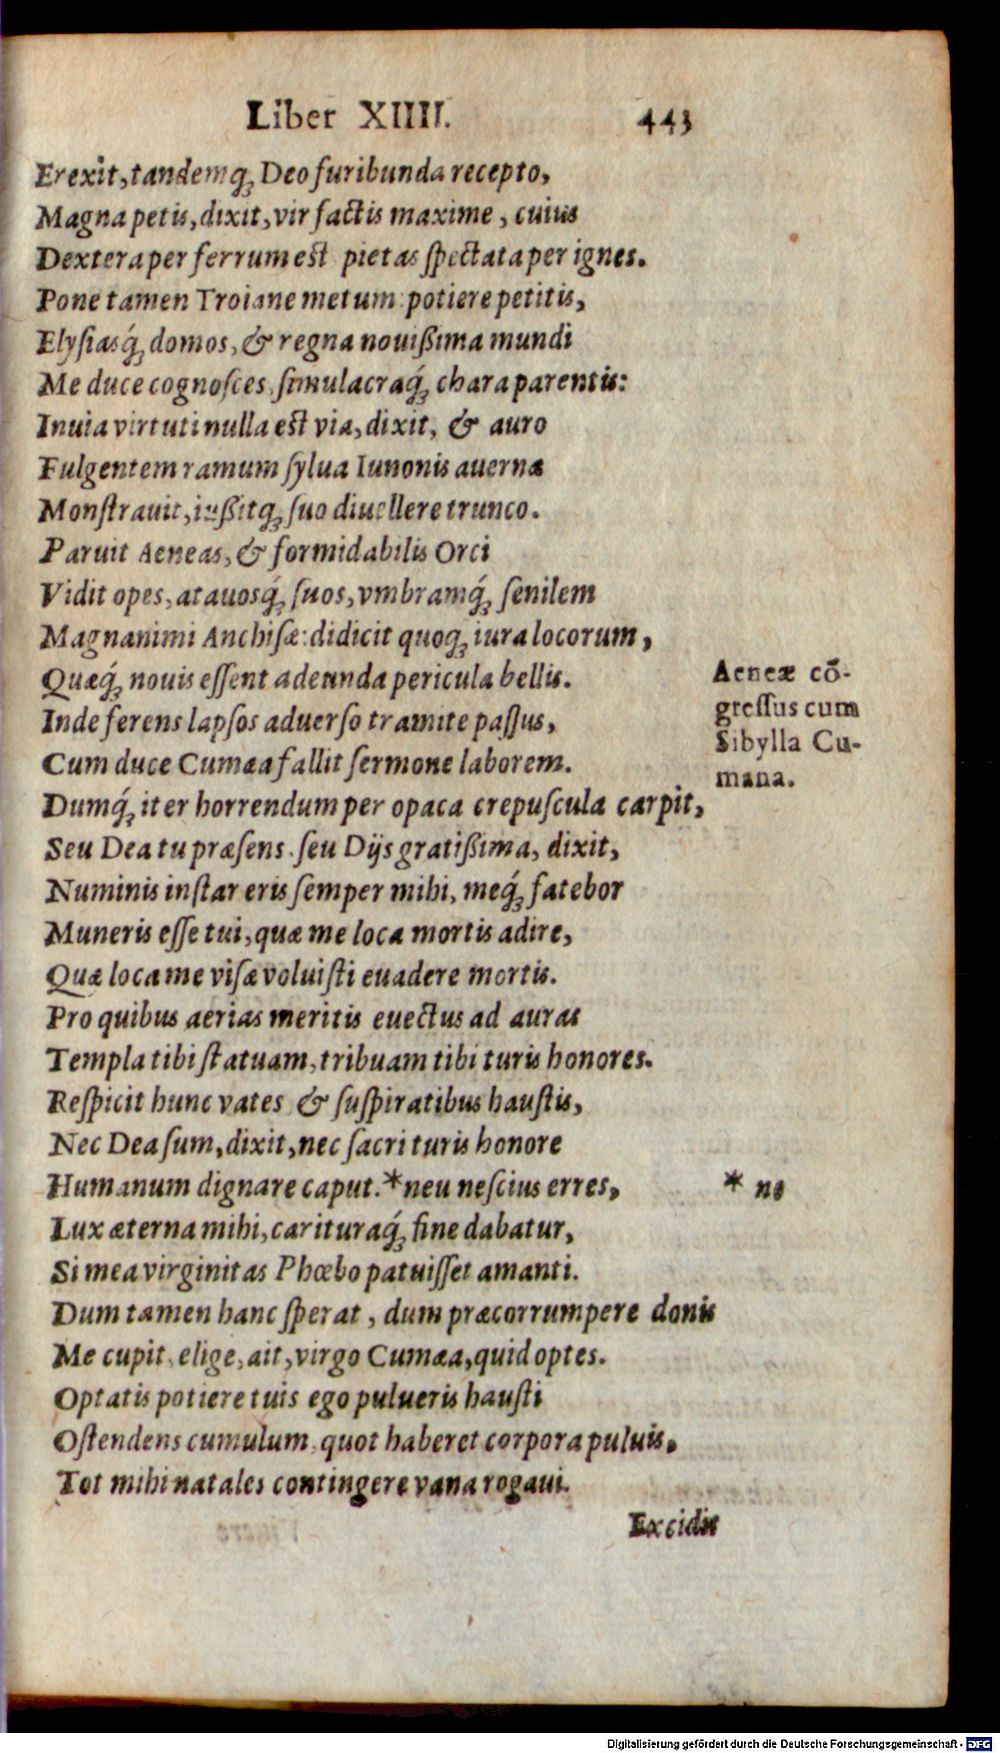 Liber XIIII. 443
Erexit, tandemq́ꝫ Deo furibunda recepto,
Magna petis, dixit, vir factis maxime, cuius
Dextera per ferrum est pietas spectata per ignes.
Pone tamen Troiane metum: potiere petitis,
Elysiasq́ꝫ domos, & regna nouißima mundi
Me duce cognosces, simulacraq́ꝫ chara parentis:
Inuia virtuti nulla est via, dixit, & auro
Fulgentem ramum sylua Iunonis auernæ
Monstrauit, iußitqꝫ suo diuellere trunco.
Paruit Aeneas, & formidabilis Orci
Vidit opes, atauosq́ꝫ suos, vmbramq́ꝫ senilem
Magnanimi Anchisæ: didicit quoqꝫ iura locorum,
Quæq́ꝫ nouis essent adeunda pericula bellis.
Inde ferens lapsos aduerso tramite passus,
Cum duce Cumæa fallit sermone laborem.
Aeneæ cō-
gressus cum
Sibylla Cu-
mana.
Dumq́ꝫ iter horrendum per opaca crepuscula carpit,
Seu Dea tu præsens seu Dijs gratißima, dixit,
Numinis instar eris semper mihi, meq́ꝫ fatebor
Muneris esse tui, quæ me loca mortis adire,
Quæ loca me visæ voluisti euadere mortis.
Pro quibus aerias meritis euectus ad auras
Templa tibi statuam, tribuam tibi turis honores.
Respicit hunc vates & suspiratibus haustis,
Nec Dea sum, dixit, nec sacri turis honore
Humanum dignare caput. *neu nescius erres,
* ne
Lux æterna mihi, carituraq́ꝫ fine dabatur,
Si mea virginitas Phœbo patuisset amanti.
Dum tamen hanc sperat, dum præcorrumpere donis
Me cupit, elige, ait, virgo Cumæa, quid optes.
Optatis potiere tuis ego pulueris hausti
Ostendens cumulum, quot haberet corpora puluis,
Tot mihi natales contingere vana rogaui.
Excidit
Digitalisierung gefördert durch die Deutsche Forschungsgemeinschaft - DFG